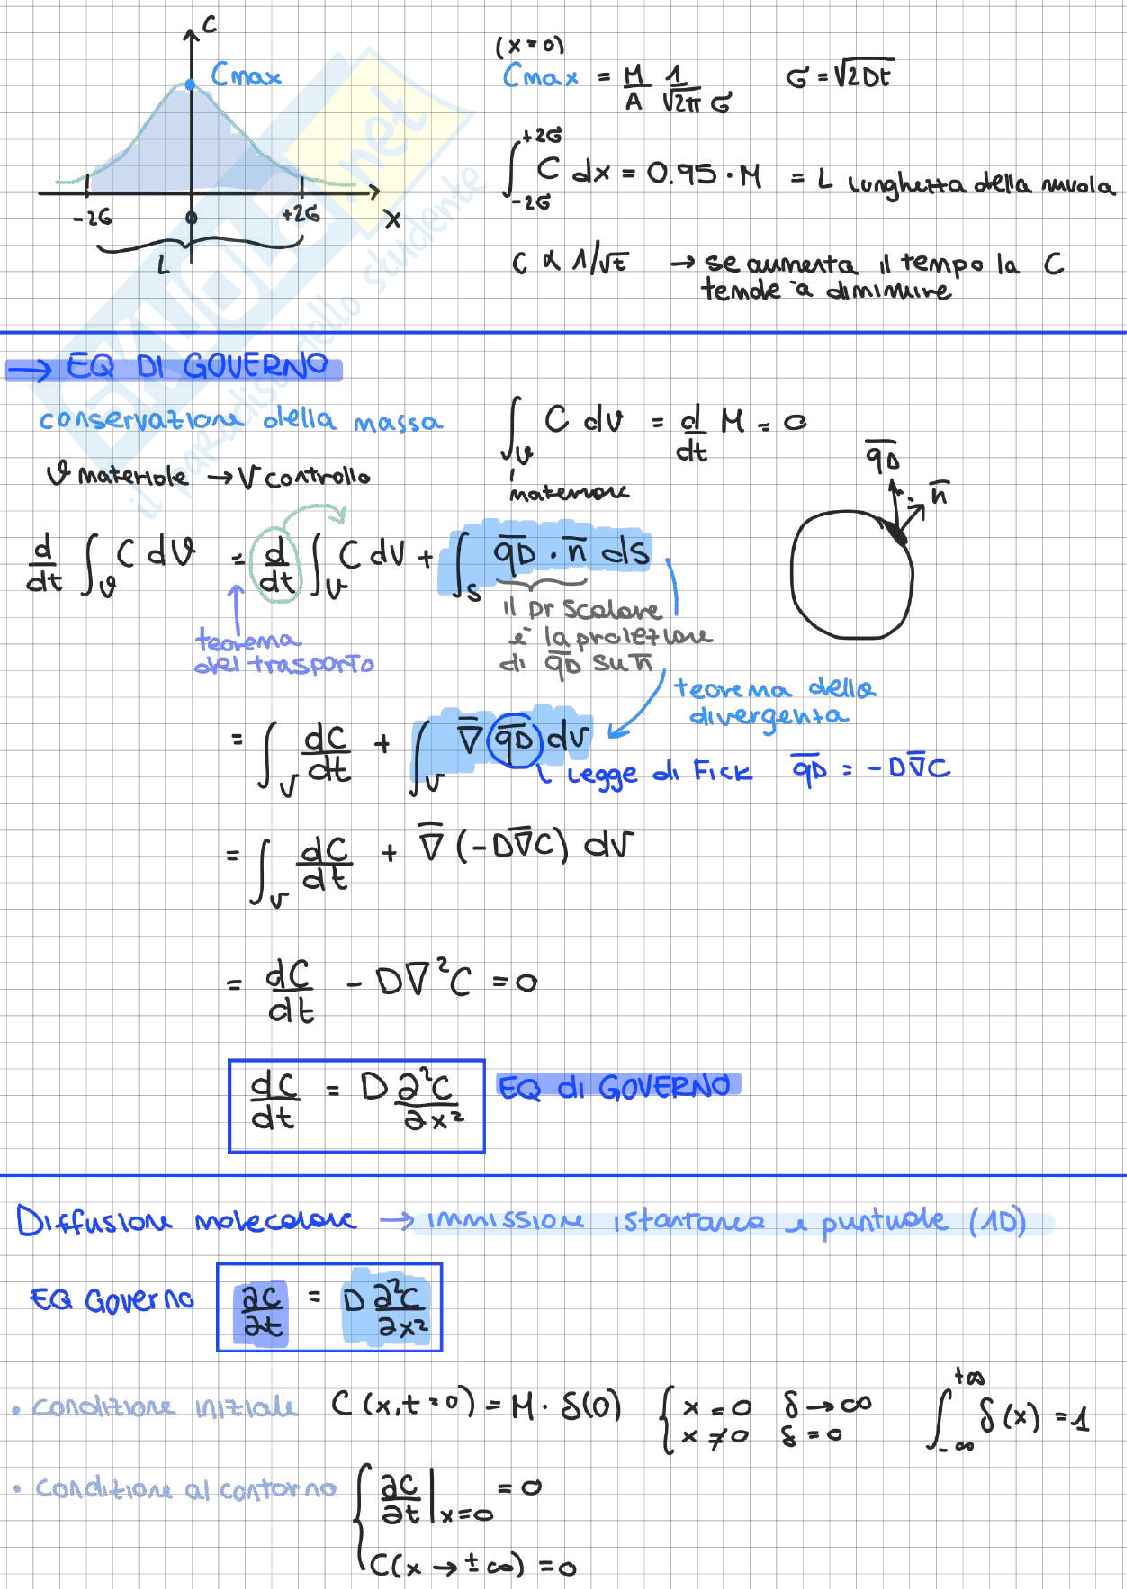 C
Cmax
-2σ
0
+2σ
x
L
(x=0)
Cmax = M/A 1/√2π σ
σ = √2Dt
∫_{-2σ}^{+2σ} C dx = 0.95 · M = L lunghezza della nuvola
C ∝ 1/√t → se aumenta il tempo la C
tende a diminuire
→ EQ DI GOVERNO
conservazione della massa
∫_v C dv = d/dt M = 0
materiale
v materiale → V controllo
q̅D
n̅
d/dt ∫_v C dv = d/dt ∫_V C dV + ∫_S q̅D · n̅ dS
teorema
del trasporto
il pr scalare
è la proiezione
di q̅D su n̅
teorema della
divergenza
= ∫_V dC/dt + ∫_V ∇̅ q̅D dv
Legge di Fick q̅D = -D∇̅C
= ∫_V dC/dt + ∇̅ (-D∇̅C) dV
= dC/dt - D∇²C = 0
dC/dt = D ∂²C/∂x²
EQ di GOVERNO
Diffusione molecolare → immissione istantanea e puntuale (1D)
EQ Governo ∂C/∂t = D ∂²C/∂x²
• condizione iniziale C(x,t=0) = M · δ(0) { x=0 δ→∞
x≠0 δ=0
∫_{-∞}^{+∞} δ(x) = 1
• condizione al contorno { ∂C/∂t |x=0 = 0
C(x → ±∞) = 0
skuola.net
il paradiso dello studente